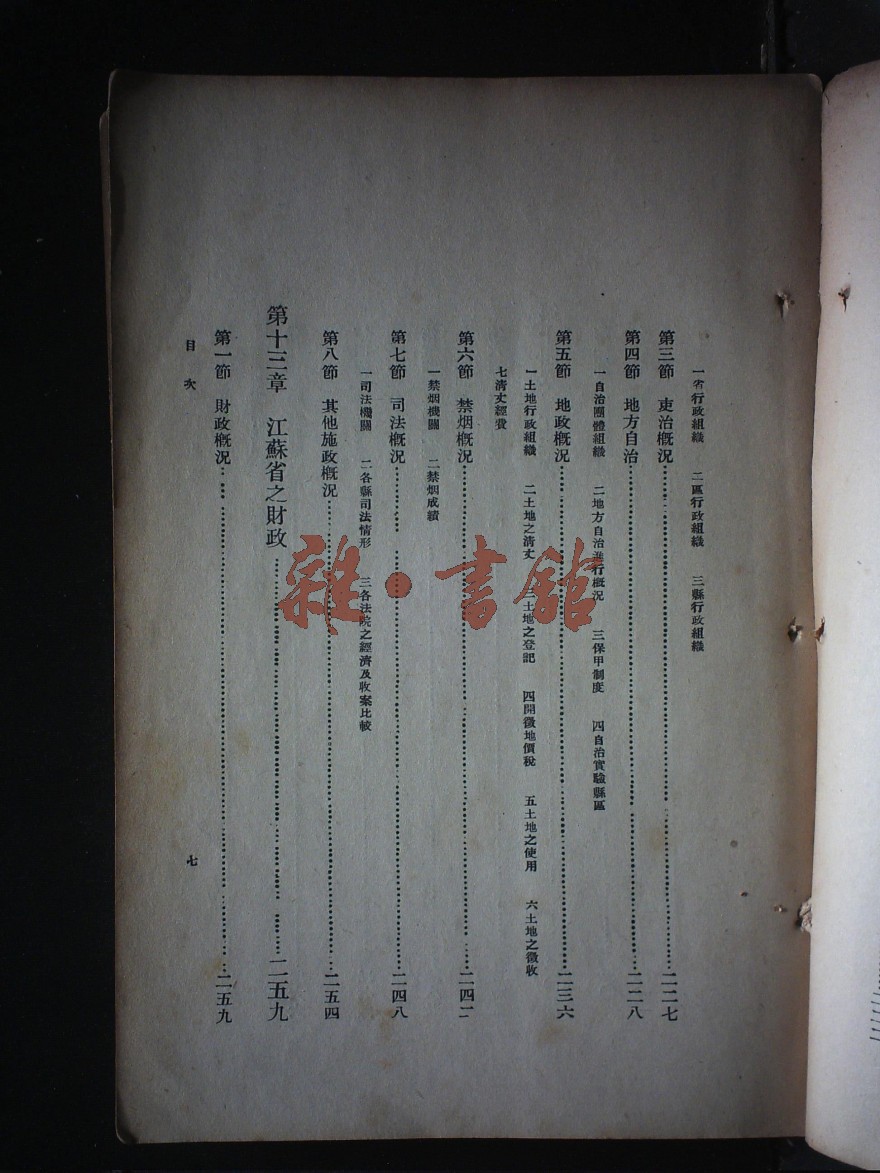 一省行政組織　二區行政組織　三縣行政組織
第三節　吏治槪況……二二七
第四節　地方自治……二二八
一自治團體組織　二地方自治進行槪況　三保甲制度　四自治實驗縣區
第五節　地政槪況……二三六
一土地行政組織　二土地之淸丈　三土地之登記　四開徵地價稅　五土地之使用　六土地之徵收
七淸丈經費
第六節　禁烟槪況……二四二
一禁烟機關　二禁烟成績
第七節　司法槪況……二四八
一司法機關　二各縣司法情形　三各法院之經濟及收案比較
第八節　其他施政槪況……二五四
第十三章　江蘇省之財政……二五九
第一節　財政槪況……二五九
目次　七
雜·書館